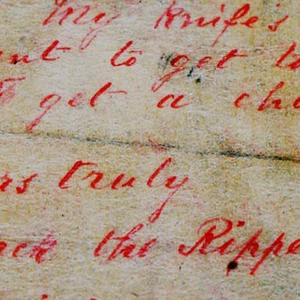 My Knife's
ant to get th
to get a cha
rs truly
ack the Rippe